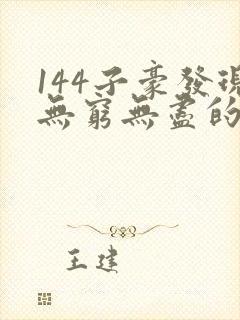 144子豪發現
無窮無盡的
王建